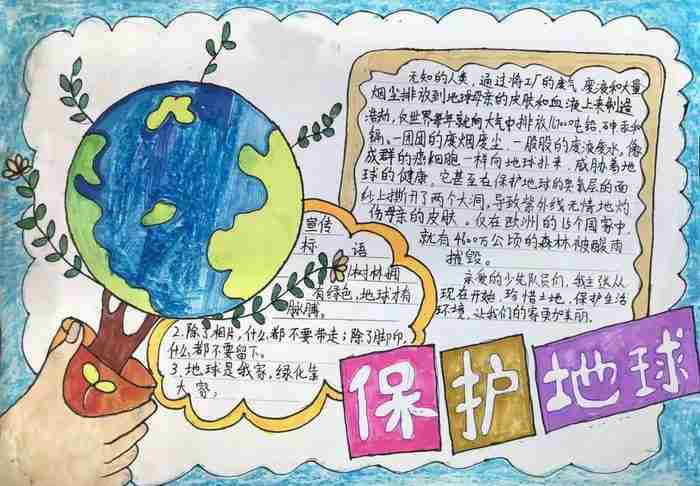 无知的人类,通过将工厂的废气、废液和大量
烟尘排放到地球母亲的皮肤和血液上来制造
浩劫,仅世界每年就向大气中排放 吨铅、砷汞和
镉、一团团的废烟废尘、一股股的废液废水,像
成群的癌细胞一样向地球扑来,威胁着地
球的健康。它甚至在保护地球的臭氧层的面
纱上撕开了两个大洞,导致紫外线无情地灼
伤母亲的皮肤。仅在欧洲的15个国家中,
就有4600万公顷的森林被酸雨
摧毁。
亲爱的少先队员们,我主张从
现在开始,珍惜土地,保护生活
环境,让我们的 更加美丽。
宣传
标语
树林拥
有绿色,地球才有
脉搏。
2.除了相片,什么都不要带走;除了脚印,
什么都不要留下。
3.地球是我家,绿化靠
大家;
保护地球